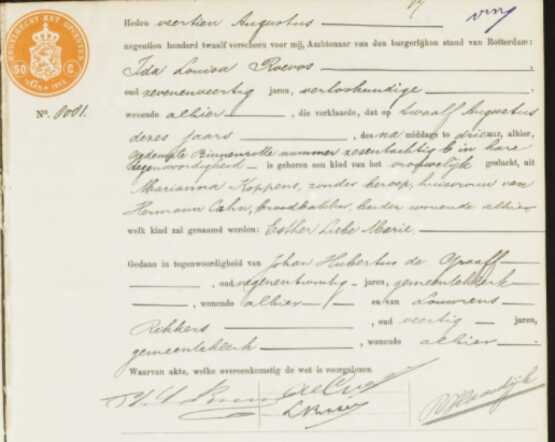 Heden veertien Augustus
negentien honderd twaalf verscheen voor mij, Ambtenaar van den burgerlijken stand van Rotterdam:
Ida Louisa
oud zevenenveertig jaren, verloskundige,
wonende alhier, die verklaarde, dat op twaalf Augustus
dezes jaars, des na middags te drie ure, alhier,
Gedempte Binnenrotte nummer zesentachtig b in hare
tegenwoordigheid is geboren een kind van het vrouwelijk geslacht, uit
Marianna Koppens, zonder beroep, huisvrouw van
Hermann Cahn, broodbakker, beiden wonende alhier
welk kind zal genaamd worden: Esther Liebe Marie.
Gedaan in tegenwoordigheid van Johan Hubertus de Graaff
, oud negenentwintig jaren, gemeenteklerk
, wonende alhier en van Louwrens
Rekkers, oud veertig jaren,
gemeenteklerk, wonende alhier.
Waarvan akte, welke overeenkomstig de wet is voorgelezen.
No. 8091.
50 C